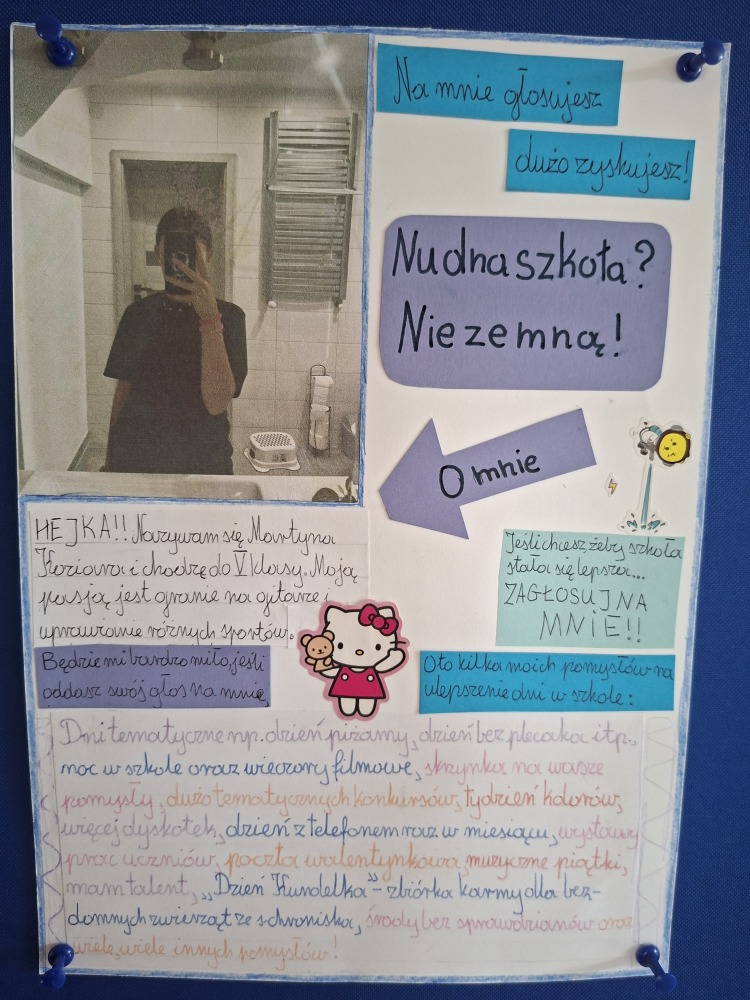 Na mnie głosujesz
dużo zyskujesz!
Nudna szkoła?
Nie ze mną!
O mnie
HEJKA!! Nazywam się Martyna
i chodzę do V klasy. Moją
pasją jest granie na gitarze i
uprawianie różnych sportów.
Będzie mi bardzo miło, jeśli
oddasz swój głos na mnie.
Jeśli chcesz, żeby szkoła
stała się lepsza...
ZAGŁOSUJ NA
MNIE!!
Oto kilka moich pomysłów na
ulepszenie dni w szkole:
Dni tematyczne np. dzień piżamy, dzień bez plecaka itp.,
noc w szkole oraz wieczory filmowe, skrzynka na wasze
pomysły, dużo tematycznych konkursów, tydzień kolorów,
więcej dyskotek, dzień z telefonem raz w miesiącu, wystawy
prac uczniów, poczta walentynkowa, muzyczne piątki,
mam talent, „Dzień Kundelka" - zbiórka karmy dla bez-
domnych zwierząt ze schroniska, środy bez sprawdzianów oraz
wiele, wiele innych pomysłów!